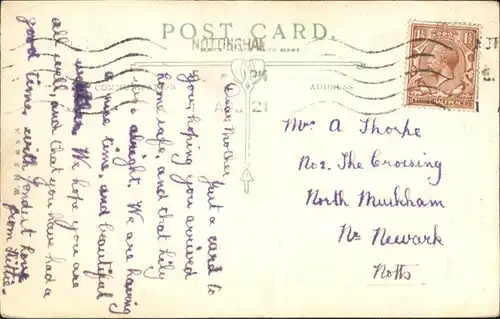 POST CARD.
NOTTINGHA
PM
21
COMMUNICATION
ADDRESS
Dear Mother Just a card to
you, hoping you arrived
home safe, and that Lily
is alright. We are having
a nice time, and beautiful
We hope you are
all well, and that you have had a
good time, with fondest love
from Millie.
Mrs A Thorpe
No2. The Crossing
North Muskham
Nr Newark
Notts